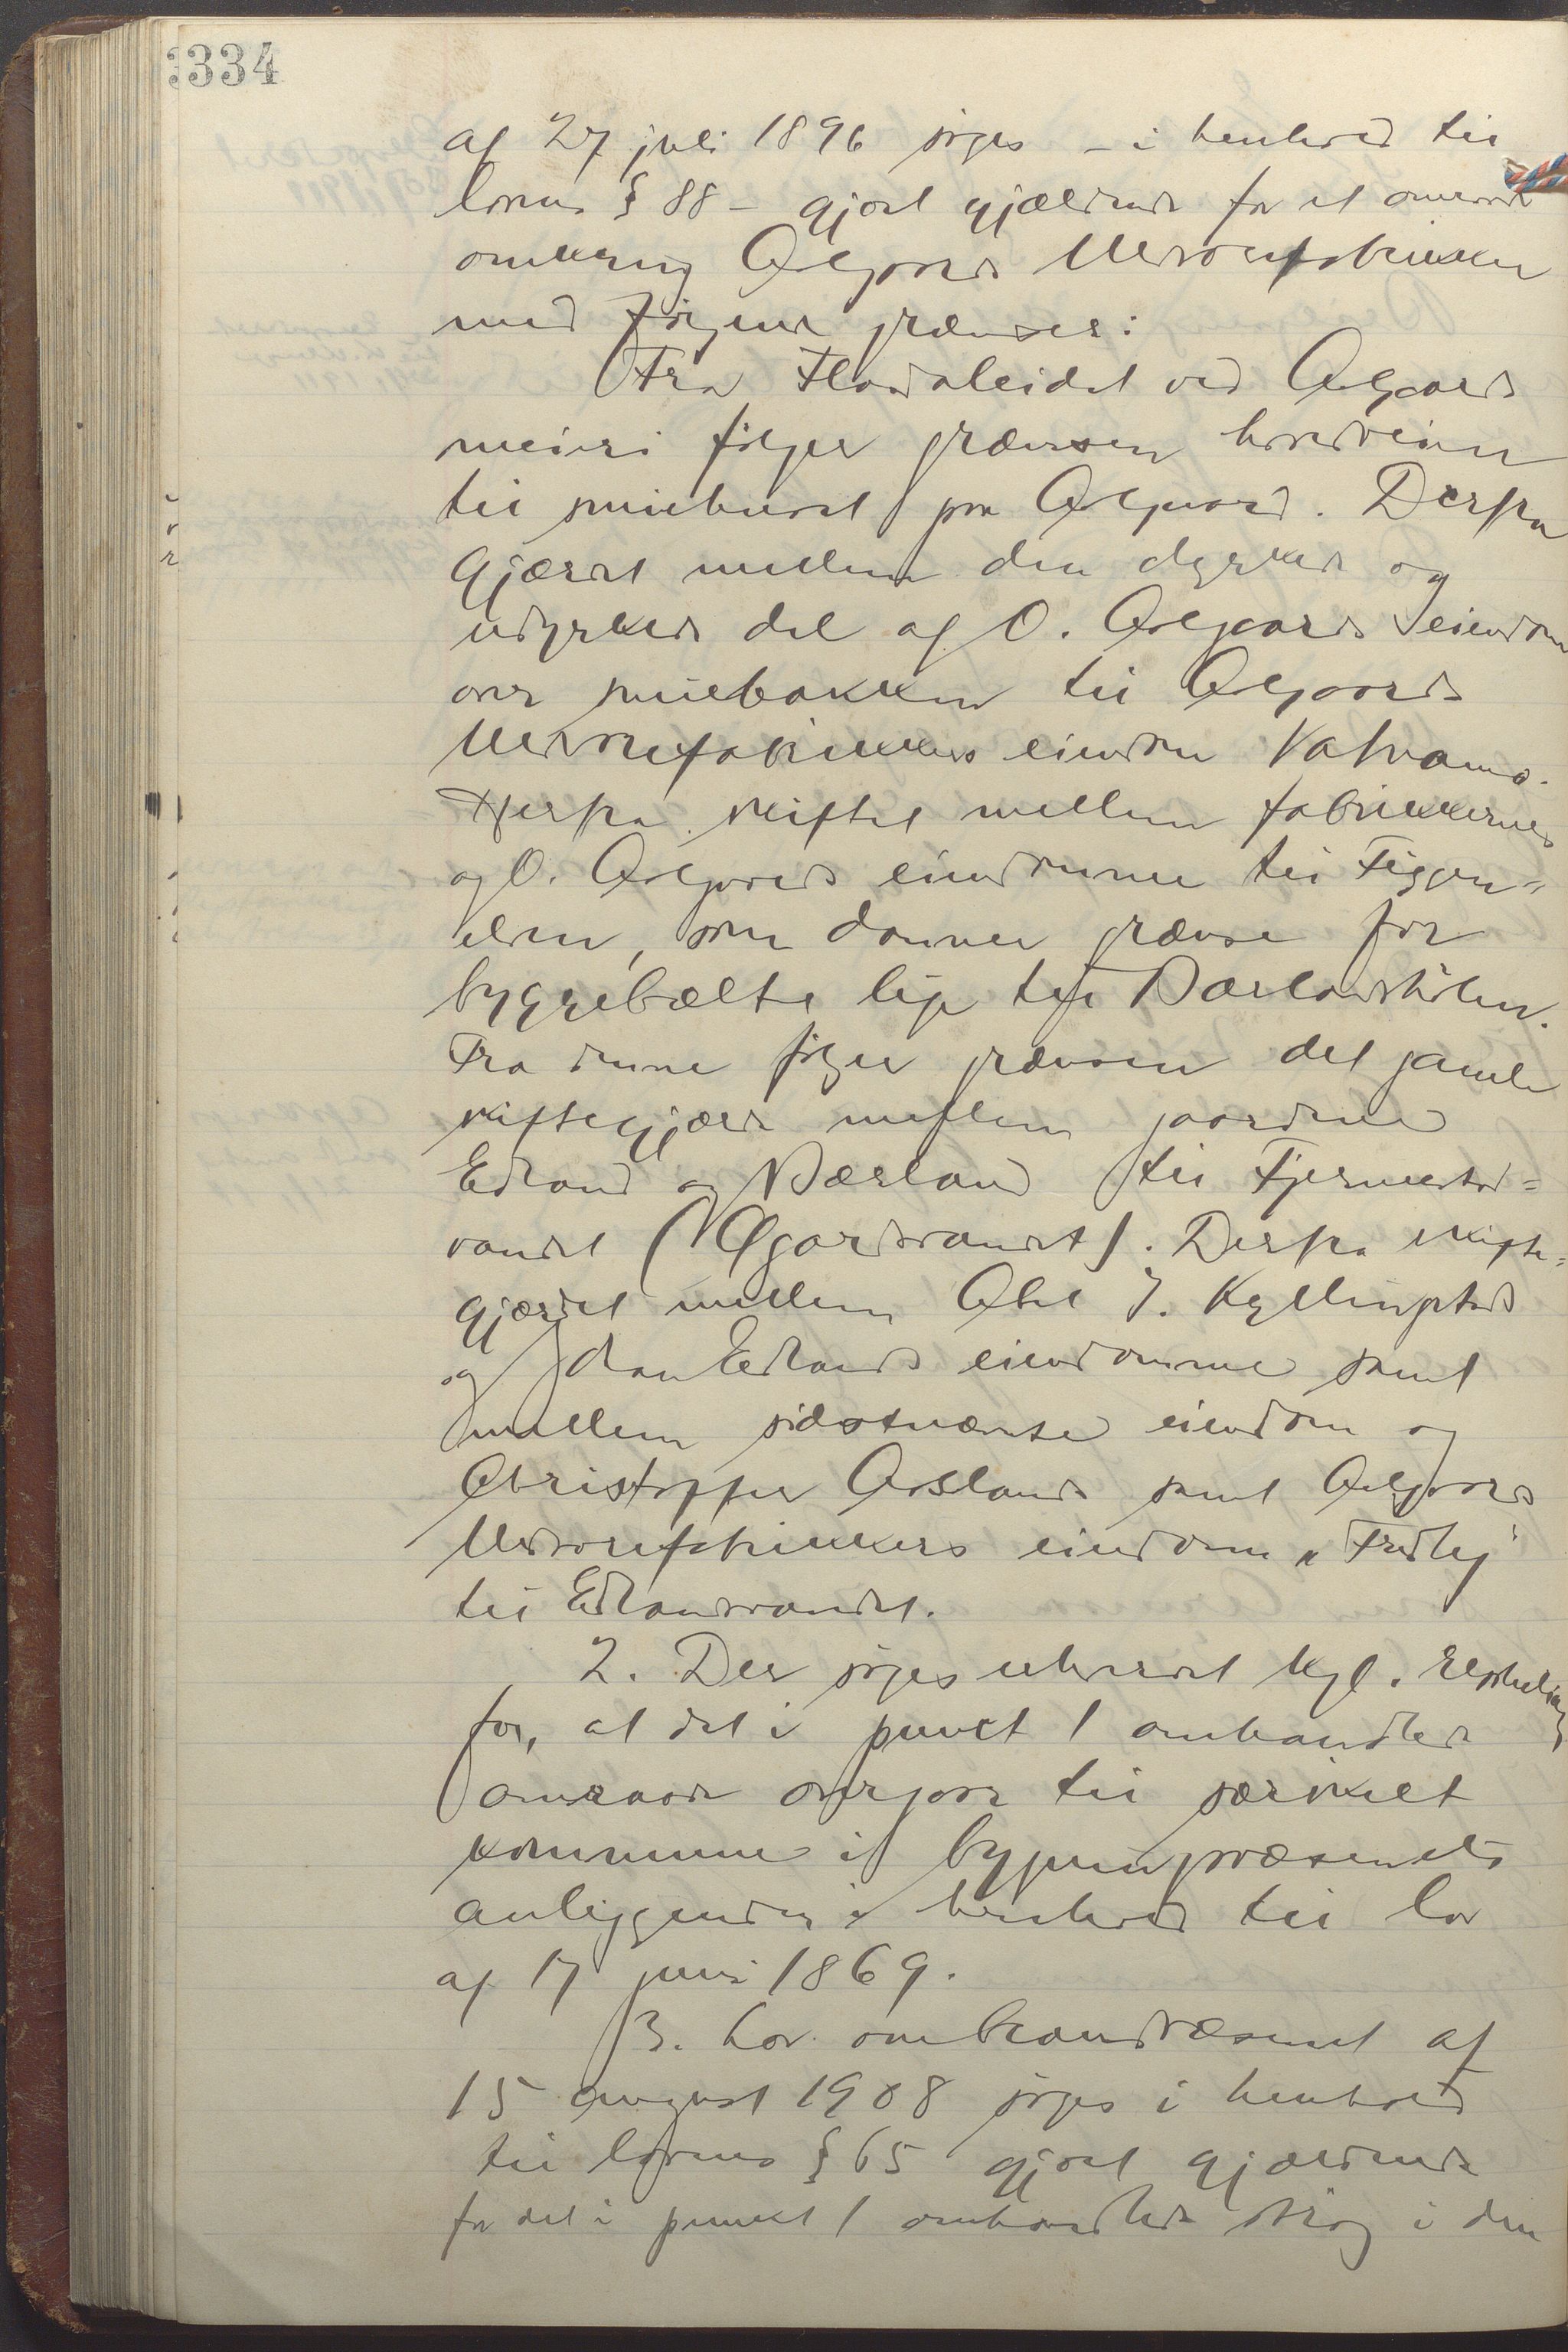 334
af 27 juli 1896 søges – i henhold til
lovens § 88 – gjort gjældende for et omraade
omkring Aalgaards Uldvarefabrikker
med følgende grænser:
Fra Flodaleidet ved Aalgaards
meieri følger grænsen hovedveien
til smiehuset paa Aalgaard. Derfra
gjærdet mellem den dyrkede og
udyrkede del af O. Aalgaards eiendom
over smiebakken til Aalgaards
Uldvarefabrikkers eiendom
Herfra skiftet mellem fabrikkernes
og O. Aalgaards eiendomme til Figgen-
elven, som danner grænse for
byggebæltet lige til Bærlandshølen.
Fra denne følger grænsen det gamle
skiftegjærde mellem gaardene
Edland og Bærland til Fjermestad-
vandet (Øgardsvandet). Derfra skifte-
gjærdet mellem Abel J. Kyllingstad
og Edlands eiendomme samt
mellem sidstnævnte eiendom og
Christoffer Aaslands samt Aalgaards
Uldvarefabrikkers eiendom "Fredly"
til Edlandsvandet.
2. Der søges utvirket kgl. resolution
for, at det i punct 1 omhandlede
omraade overgaar til særskilt
kommune i bygningsvæsenets
anliggender i henhold til lov
af 17 juni 1869.
3. Lov om brandvæsenet af
15 august 1908 søges i henhold
til lovens § 65 gjort gjældende
for det i punkt 1 omhandlede strøg i den